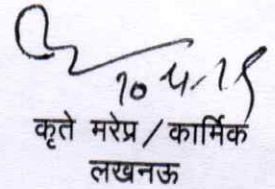 10-4-15
कृते मरेप्र / कार्मिक
लखनऊ